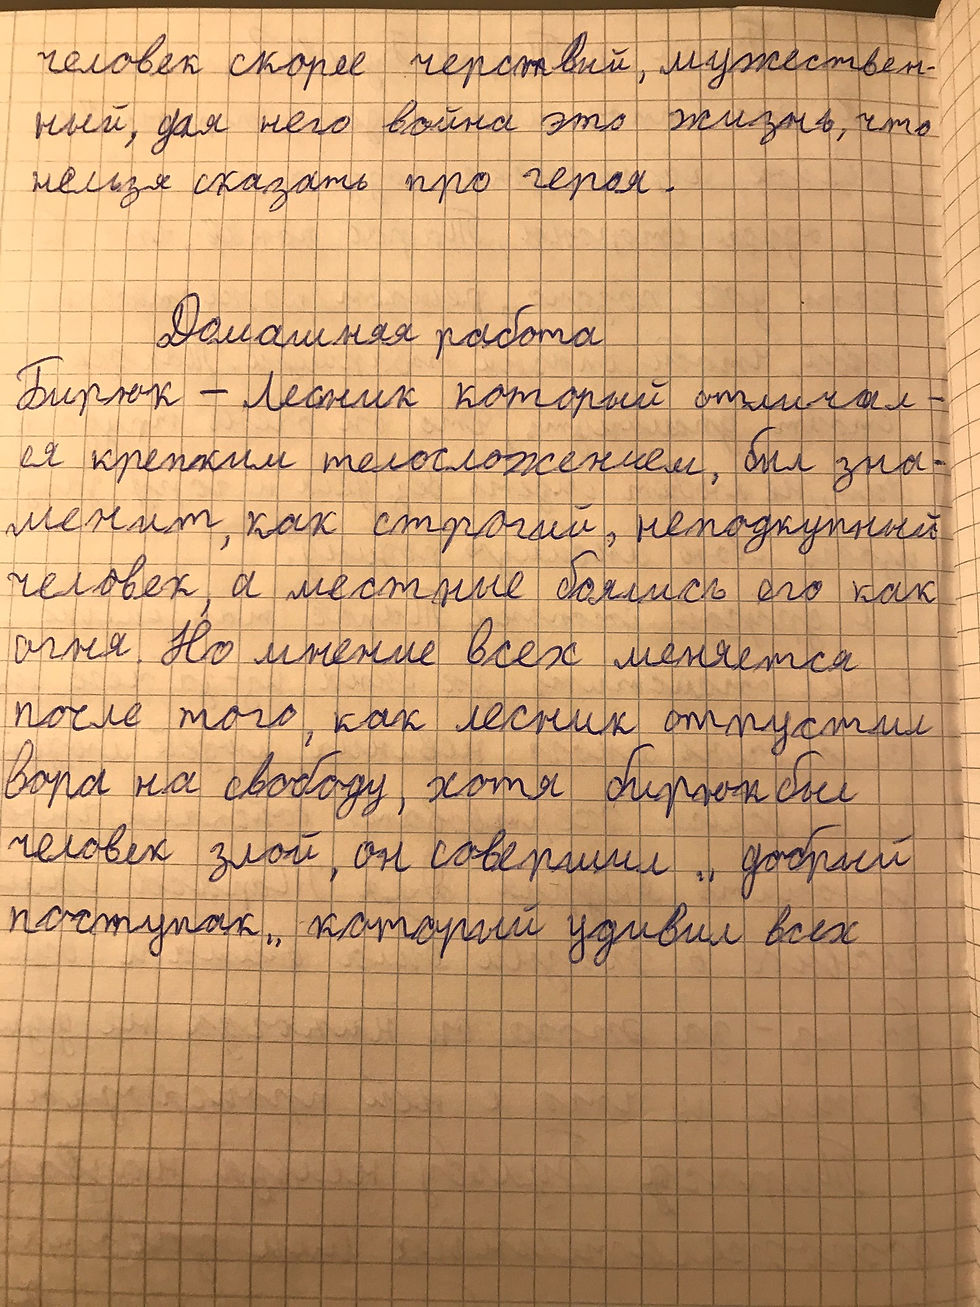 человек скорее черствий, мужествен-
ный, для него война это жизнь, что
нельзя сказать про героя.
Домашняя работа
Бирюк – Лесник который отличал-
ся крепким телосложением, был зна-
менит, как строгий, неподкупный
человек, а местные боялись его как
огня. Но мнение всех меняется
после того, как лесник отпустил
вора на свободу, хотя бирюк был
человек злой, он совершил „ добрый
поступак „ который удивил всех